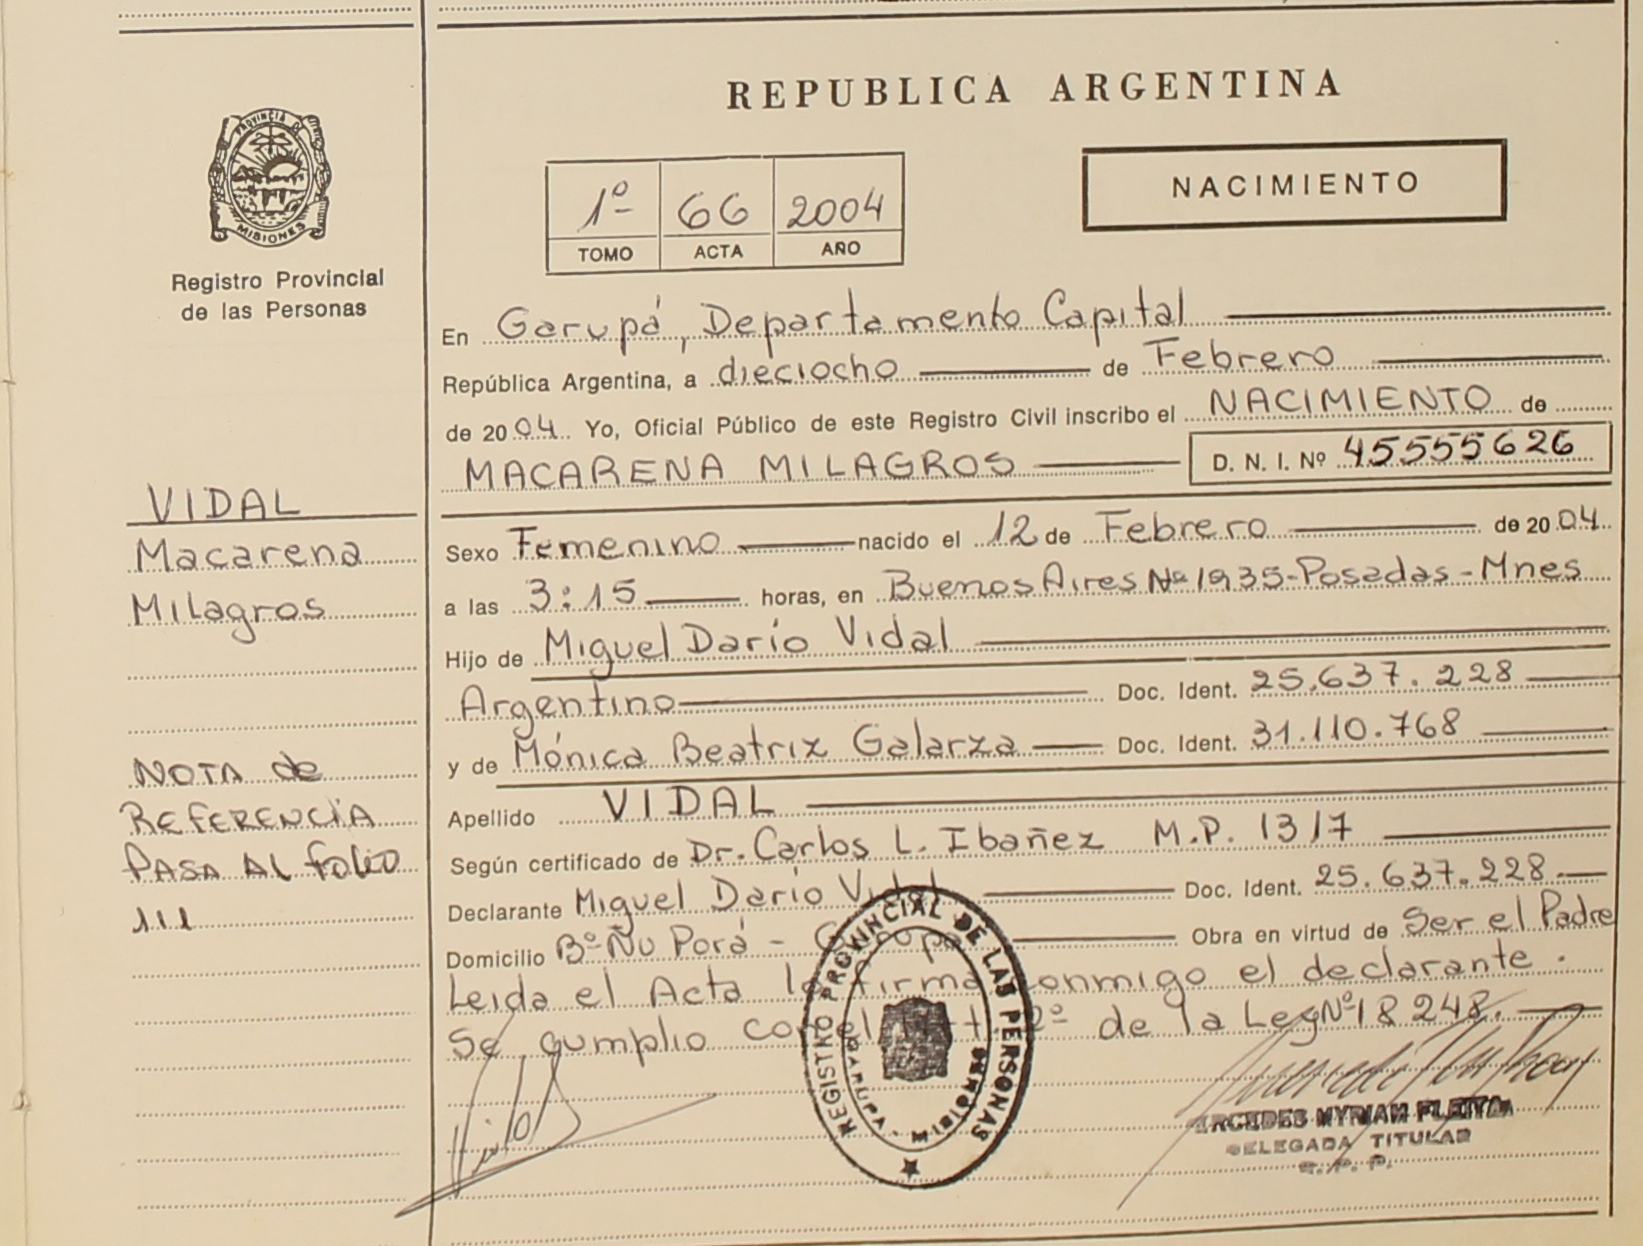 REPUBLICA ARGENTINA
PROVINCIA DE
MISIONES
Registro Provincial
de las Personas
1º 66 2004
TOMO ACTA AÑO
NACIMIENTO
En Garupá, Departamento Capital
República Argentina, a dieciocho de Febrero
de 2004 Yo, Oficial Público de este Registro Civil inscribo el NACIMIENTO de
MACARENA MILAGROS D. N. I. Nº 45555626
VIDAL
Macarena
Milagros
Sexo Femenino nacido el 12 de Febrero de 2004
a las 3:15 horas, en Buenos Aires Nº 1935-Posadas-Mnes
Hijo de Miguel Darío Vidal
Argentino Doc. Ident. 25.637.228
y de Mónica Beatriz Galarza Doc. Ident. 31.110.768
NOTA de
REFERENCIA
PASA AL folio
111
Apellido VIDAL
Según certificado de Dr. Carlos L. Ibañez M.P. 1317
Declarante Miguel Darío Vidal Doc. Ident. 25.637.228
Domicilio Bº Ñu Porá - Garupá Obra en virtud de Ser el Padre
Leida el Acta la firma conmigo el declarante.
Se cumplio con el Art. 2º de la Ley Nº 18248.
REGISTRO PROVINCIAL DE LAS PERSONAS
GARUPA - MISIONES
Vidal
MERCEDES MYRIAM FLEITA
DELEGADA TITULAR
R. P. P.